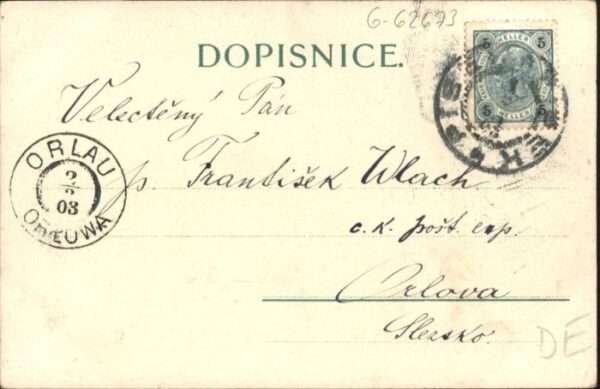 G-62673
DOPISNICE.
5 5
HELLER
5 5
Velectěný Pán
ORLAU
2/2
03
ORŁOWA
p. František Wlach
c. k. pošt. exp.
Orlová
Slezsko.
DE